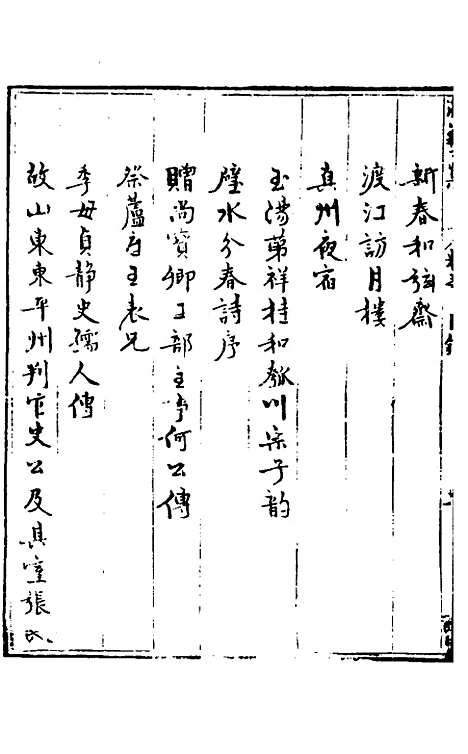 新春和弦齋
渡江訪月樓
真州夜宿
玉湯第祥桂和瓠川宗子韵
璧水分春詩序
贈尚寶卿工部主事何公傳
祭蘆舟王表兄
季母貞靜史孺人傳
故山東東平州判官史公及其室張氏